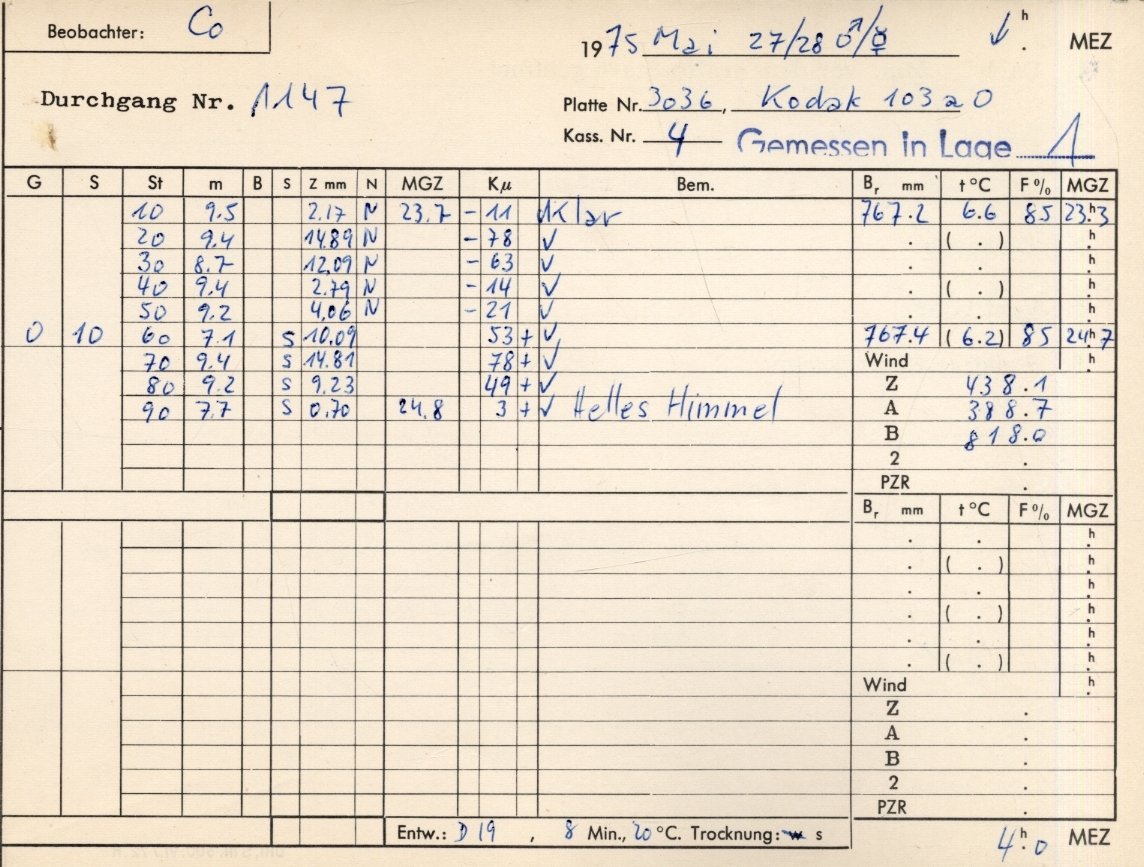 Beobachter: Co
1975 Mai 27/28 ♂/☿ h . MEZ
Durchgang Nr. 1147
Platte Nr. 3036, Kodak 103 a O
Kass. Nr. 4 Gemessen in Lage 1
G S St m B S Z mm N MGZ Kμ Bem. Br mm t °C F% MGZ
10 9.5 2.17 N 23.7 - 11 ✓ Klar 767.2 6.6 85 23h.3
20 9.4 14.89 N - 78 ✓ . ( . ) h.
30 8.7 12.09 N - 63 ✓ . . h.
40 9.4 2.79 N - 14 ✓ . ( . ) h.
50 9.2 4.06 N - 21 ✓ . . h.
0 10 60 7.1 S 10.09 53 + ✓ 767.4 (6.2) 85 24h.7
70 9.4 S 14.81 78 + ✓ Wind h.
80 9.2 S 9.23 49 + ✓ Z 438.1
90 7.7 S 0.70 24.8 3 + ✓ Helles Himmel A 388.7
B 818.0
2 .
PZR .
Br mm t °C F% MGZ
. . h.
. ( . ) h.
. . h.
. ( . ) h.
. . h.
. ( . ) h.
Wind h.
Z .
A .
B .
2 .
PZR .
Entw.: D 19 , 8 Min., 20 °C. Trocknung: w s
4h.0 MEZ